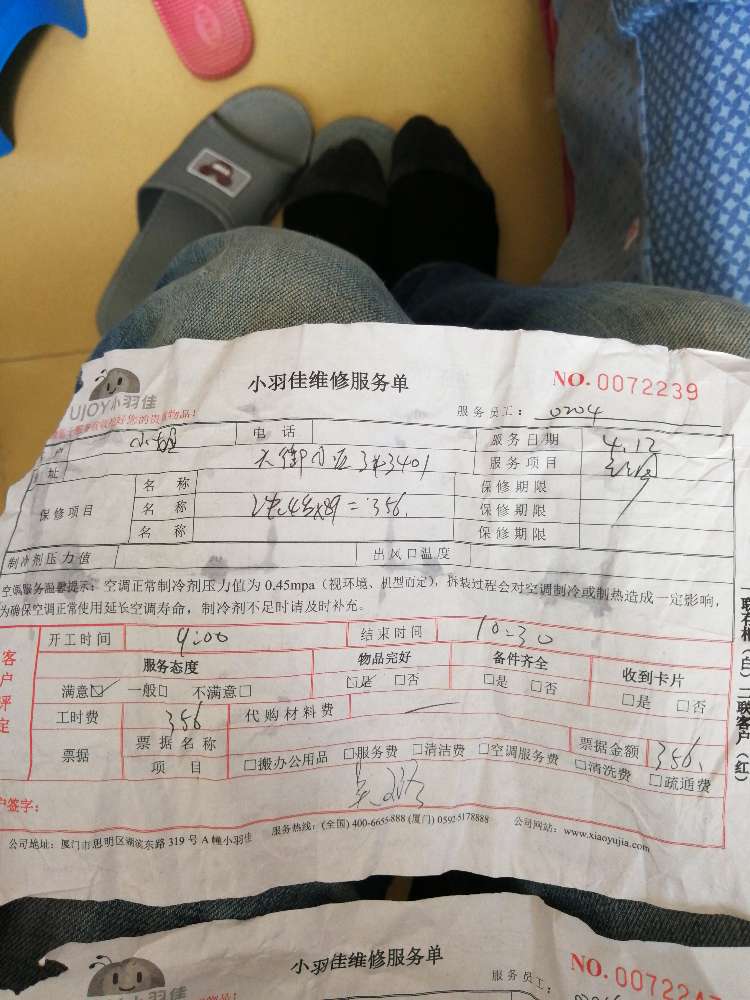 小羽佳维修服务单
NO. 0072239
UJOY小羽佳
服务员工： 0204
电 话
服务日期 4.12
址 3#3401
服务项目
保修项目
名 称
保修期限
名 称 ×89=356.
保修期限
名 称
保修期限
制冷剂压力值
出风口温度
空调服务温馨提示：空调正常制冷剂压力值为 0.45mpa（视环境、机型而定），拆装过程会对空调制冷或制热造成一定影响，
为确保空调正常使用延长空调寿命，制冷剂不足时请及时补充。
客户评定
开工时间 9:00 结束时间 10:30
服务态度 物品完好 备件齐全 收到卡片
满意☑ 一般□ 不满意□ ☑是 □否 □是 □否 □是 □否
工时费 356 代购材料费 —
票据 票据名称 票据金额 356.
项 目 □搬办公用品 □服务费 □清洁费 □空调服务费 □清洗费 □疏通费
户签字：
公司地址：厦门市思明区湖滨东路 319 号 A 幢小羽佳 服务热线：(全国) 400-6655-888 (厦门) 0592-5178888 公司网站：www.xiaoyujia.com
（白）二联客户（红）
小羽佳维修服务单
服务员工：
NO. 007224
小羽佳